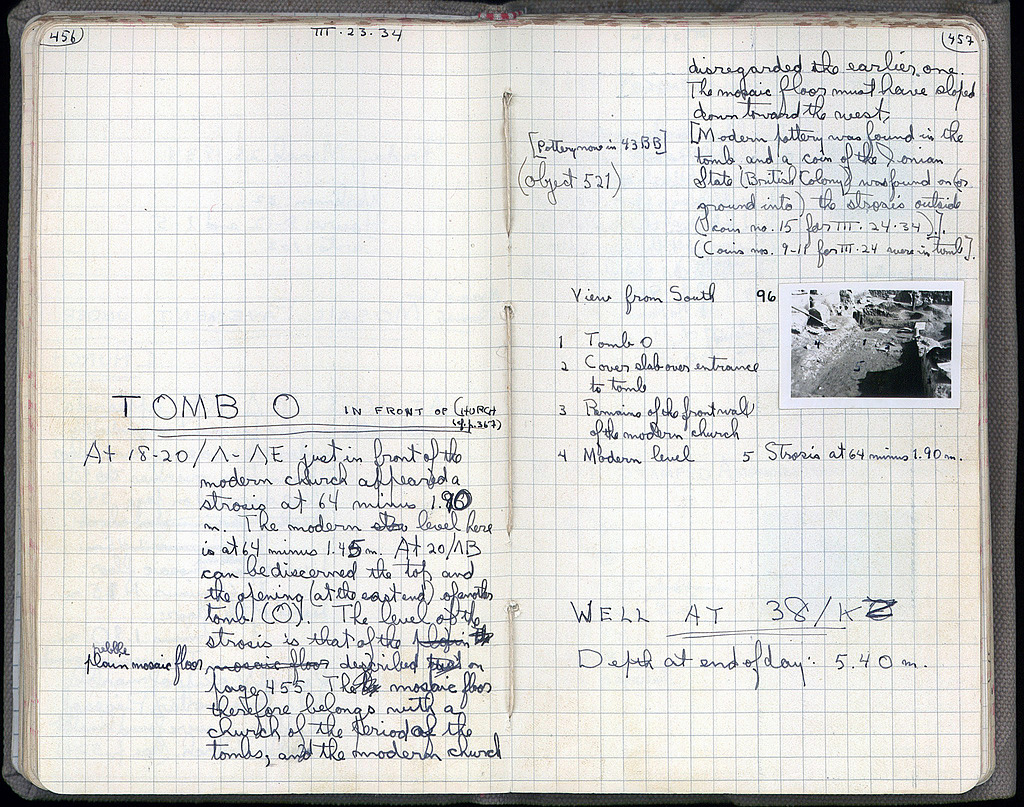 456
III.23.34
TOMB O IN FRONT OF CHURCH
(cf. p. 367)
At 18-20/Λ-ΛE just in front of the
modern church appeared a
strosis at 64 minus 1.90
m. The modern level here
is at 64 minus 1.45 m. At 20/ΛB
can be discerned the top and
the opening (at the east end) of another
tomb (O). The level of the
strosis is that of the
pebble
plain mosaic floor, mosaic floor described on
page 455. The mosaic floor
therefore belongs with a
church of the period of the
tombs, and the modern church
457
disregarded the earlier one.
The mosaic floor must have sloped
down toward the west.
[Modern pottery was found in the
tomb and a coin of the Ionian
State (British Colony) was found on (or
ground into) the strosis outside
(coin no. 15 for III.24.34).].
(Coins nos. 9-11 for III.24 were in tomb].
[Pottery now in 43 BB]
(object 521)
View from South 96
1 Tomb O
2 Cover slab over entrance
to tomb
3 Remains of the front wall
of the modern church
4 Modern level 5 Strosis at 64 minus 1.90 m.
WELL AT 38/K
Depth at end of day: 5.40 m.